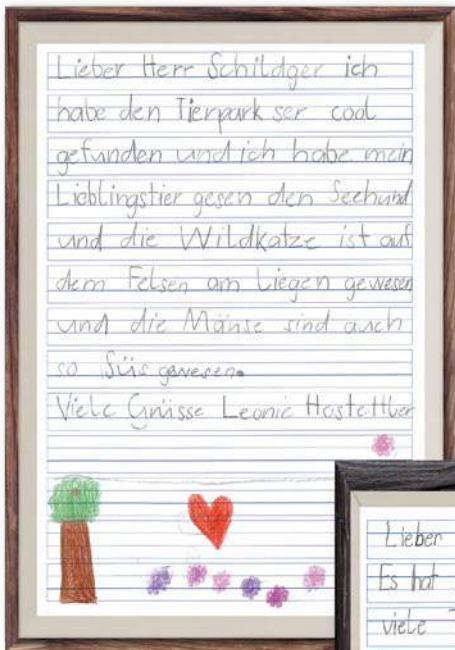 Lieber Herr Schildger ich
habe den Tierpark ser cool
gefunden und ich habe mein
Lieblingstier gesen den Seehund
und die Wildkatze ist auf
dem Felsen am Liegen gewesen
und die Mäuse sind auch
so Süs gewesen.
Viele Grüsse Leonie Hostettler
Lieber
Es hat
viele